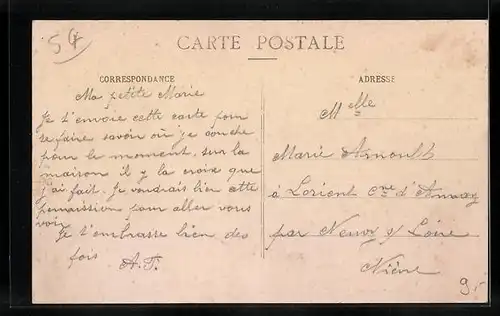 54
CARTE POSTALE
CORRESPONDANCE
Ma petite Marie
Je t'envoie cette carte pour
te faire savoir où je couche
pour le moment, sur la
maison il y la croix que
j'ai fait. Je voudrais bien être
permission pour aller vous
voir
Je t'embrasse bien des
fois A.F.
ADRESSE
Melle
Marie Arnoult
à Lorient Cne d'Annay
par Neuvy s/ Loire
Nièvre
9.-